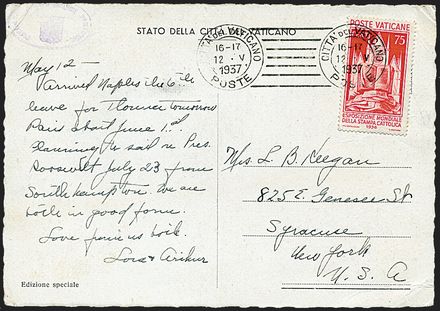 STATO DELLA CITTÀ DEL VATICANO
CITTÀ DEL VATICANO
16-17
12 · V
1937
POSTE
CITTÀ DEL VATICANO
16-17
12 · V
1937
POSTE
POSTE VATICANE
75
ESPOSIZIONE MONDIALE
DELLA STAMPA CATTOLICA
1936
May 12 —
Arrived Naples the 6th
leave for Florence tomorrow
Paris about June 1st.
Planning to sail on Pres.
Roosevelt July 23 from
Southampton. We are
both in good form.
Love from us both.
Lois & Arthur
Mrs. L. B. Keegan
825 E. Genesee St
Syracuse
New York
U. S. A
Edizione speciale